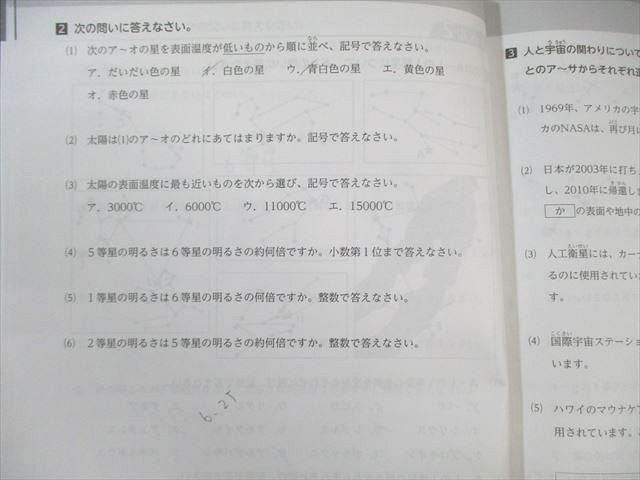 2 次の問いに答えなさい。
(1) 次のア～オの星を表面温度が低いものから順に並べ、記号で答えなさい。
ア．だいだい色の星 イ．白色の星 ウ．青白色の星 エ．黄色の星
オ．赤色の星
(2) 太陽は(1)のア～オのどれにあてはまりますか。記号で答えなさい。
(3) 太陽の表面温度に最も近いものを次から選び、記号で答えなさい。
ア．3000℃ イ．6000℃ ウ．11000℃ エ．15000℃
(4) 5等星の明るさは6等星の明るさの約何倍ですか。小数第1位まで答えなさい。
(5) 1等星の明るさは6等星の明るさの何倍ですか。整数で答えなさい。
(6) 2等星の明るさは5等星の明るさの約何倍ですか。整数で答えなさい。
6.25
3 人と宇宙の関わりについて
とのア～サからそれぞれ
(1) 1969年、アメリカの宇
カのNASAは、再び月
(2) 日本が2003年に打ち
し、2010年に帰還し
か の表面や地中の
(3) 人工衛星には、カー
るのに使用されてい
す。
(4) 国際宇宙ステーショ
います。
(5) ハワイのマウナケア
用されています。